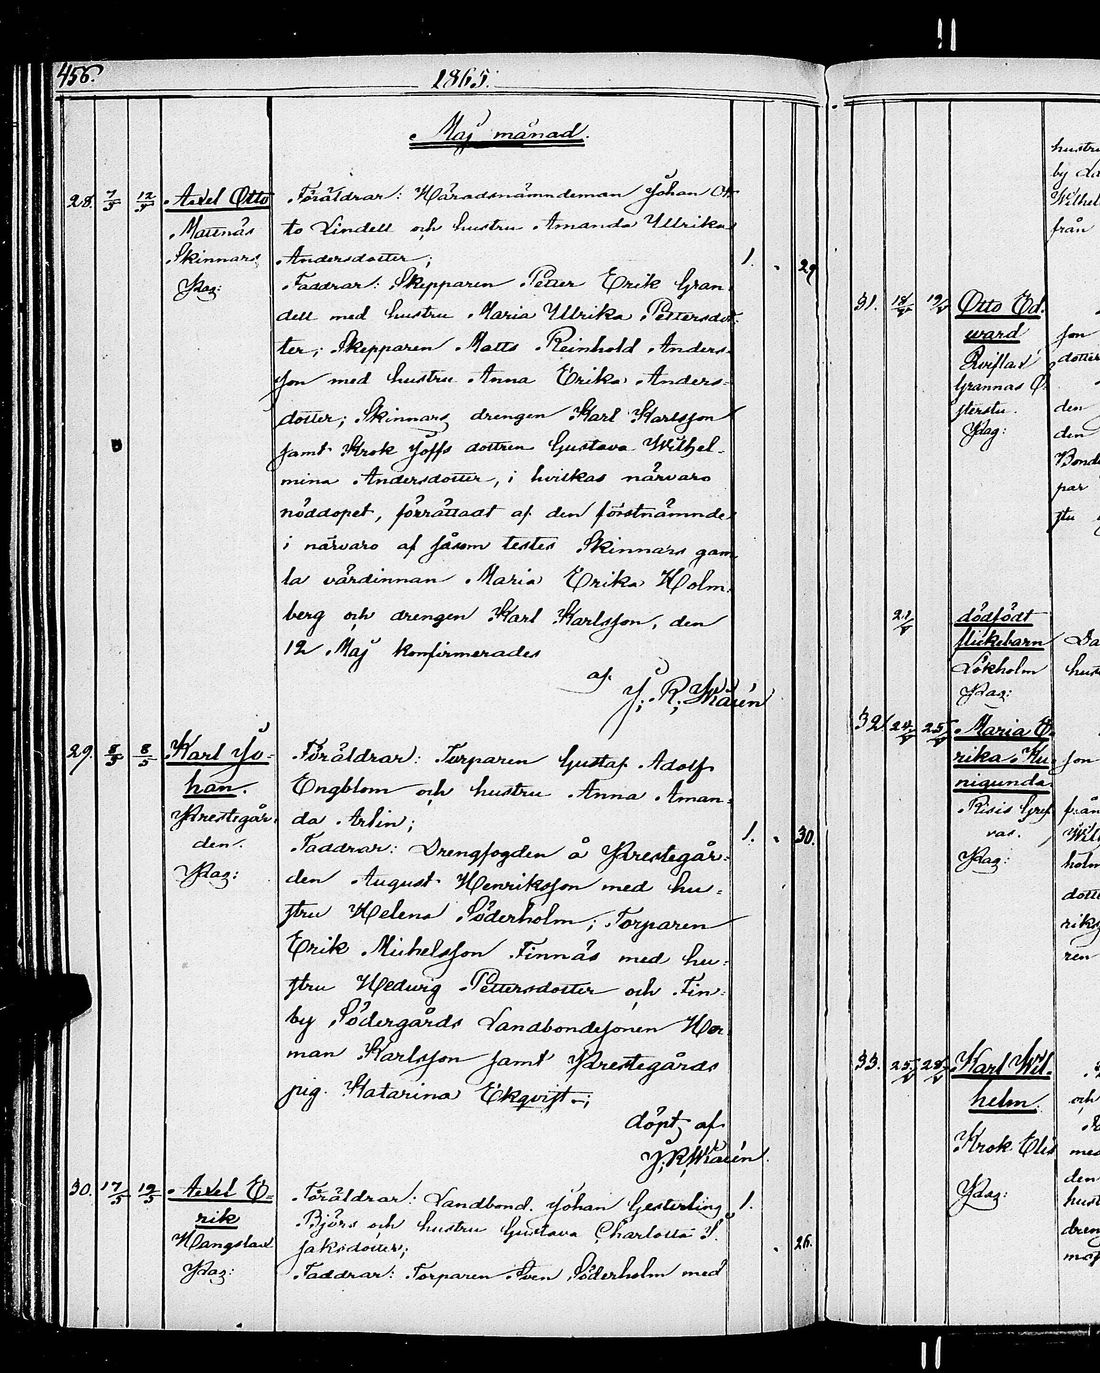 456.
1865.
Maj månad.
28. 7/5 12/5 Axel Otto
Mattnäs
Skinnars
Pag:
Föräldrar: Häradsnämndeman Johan Ot-
to Lindell och hustru Amanda Ullrika
Andersdotter;
1. 29
Faddrar: Skepparen Petter Erik Gran-
dell med hustru Maria Ullrika Pettersdot-
ter; Skepparen Matts Reinhold Anders-
son med hustru Anna Erika Anders-
dotter; Skinnars drengen Karl Karlsson
samt Krok Joffs dottren Gustava Wilhel-
mina Andersdotter, i hvilkas närvaro
nöddopet, förrättadt af den förstnämnde
i närvaro af såsom testes Skinnars gam-
la värdinnan Maria Erika Holm-
berg och drengen Karl Karlsson, den
12 Maj konfirmerades
af
29. 8/5 8/5 Karl Jo-
han.
Prestegår-
den.
Pag:
Föräldrar: Torparen Gustaf Adolf
Engblom och hustru Anna Aman-
da Arlin;
1. 30.
Faddrar: Drengfogden å Prestegår-
den August Henriksson med hu-
stru Helena Söderholm; Torparen
Erik Michelsson Finnäs med hu-
stru Hedwig Pettersdotter och Fin-
by Södergårds Landbondesonen Her-
man Karlsson samt Prestegårds
pig. Katarina Ekqvist;
döpt af
30. 17/5 19/5 Axel E-
rik
Hangslax
Pag:
Föräldrar: Landbond. Johan Gesterling 1.
Björs och hustru Gustava Charlotta I-
saksdotter;
26.
Faddrar: Torparen Sven Söderholm med
hustru
by
Wilhel
från
31. 18/5 19/5 Otto Ed-
ward
Qviflax
Grannas Ö-
sterstu.
Pag:
son
dotter
den
den
Bonde
par
stu
21/5 dödfödt
flickebarn
Lökholm
Pag:
hust
32. 24/5 25/5 Maria E-
rika Ku-
nigunda
Risis Gref-
vas.
Pag:
son
från
Wil
holm
dott
riks
ren
33. 25/5 28/5 Karl Wil-
helm.
Krok Elis
Pag:
och
med
den
hust
dren